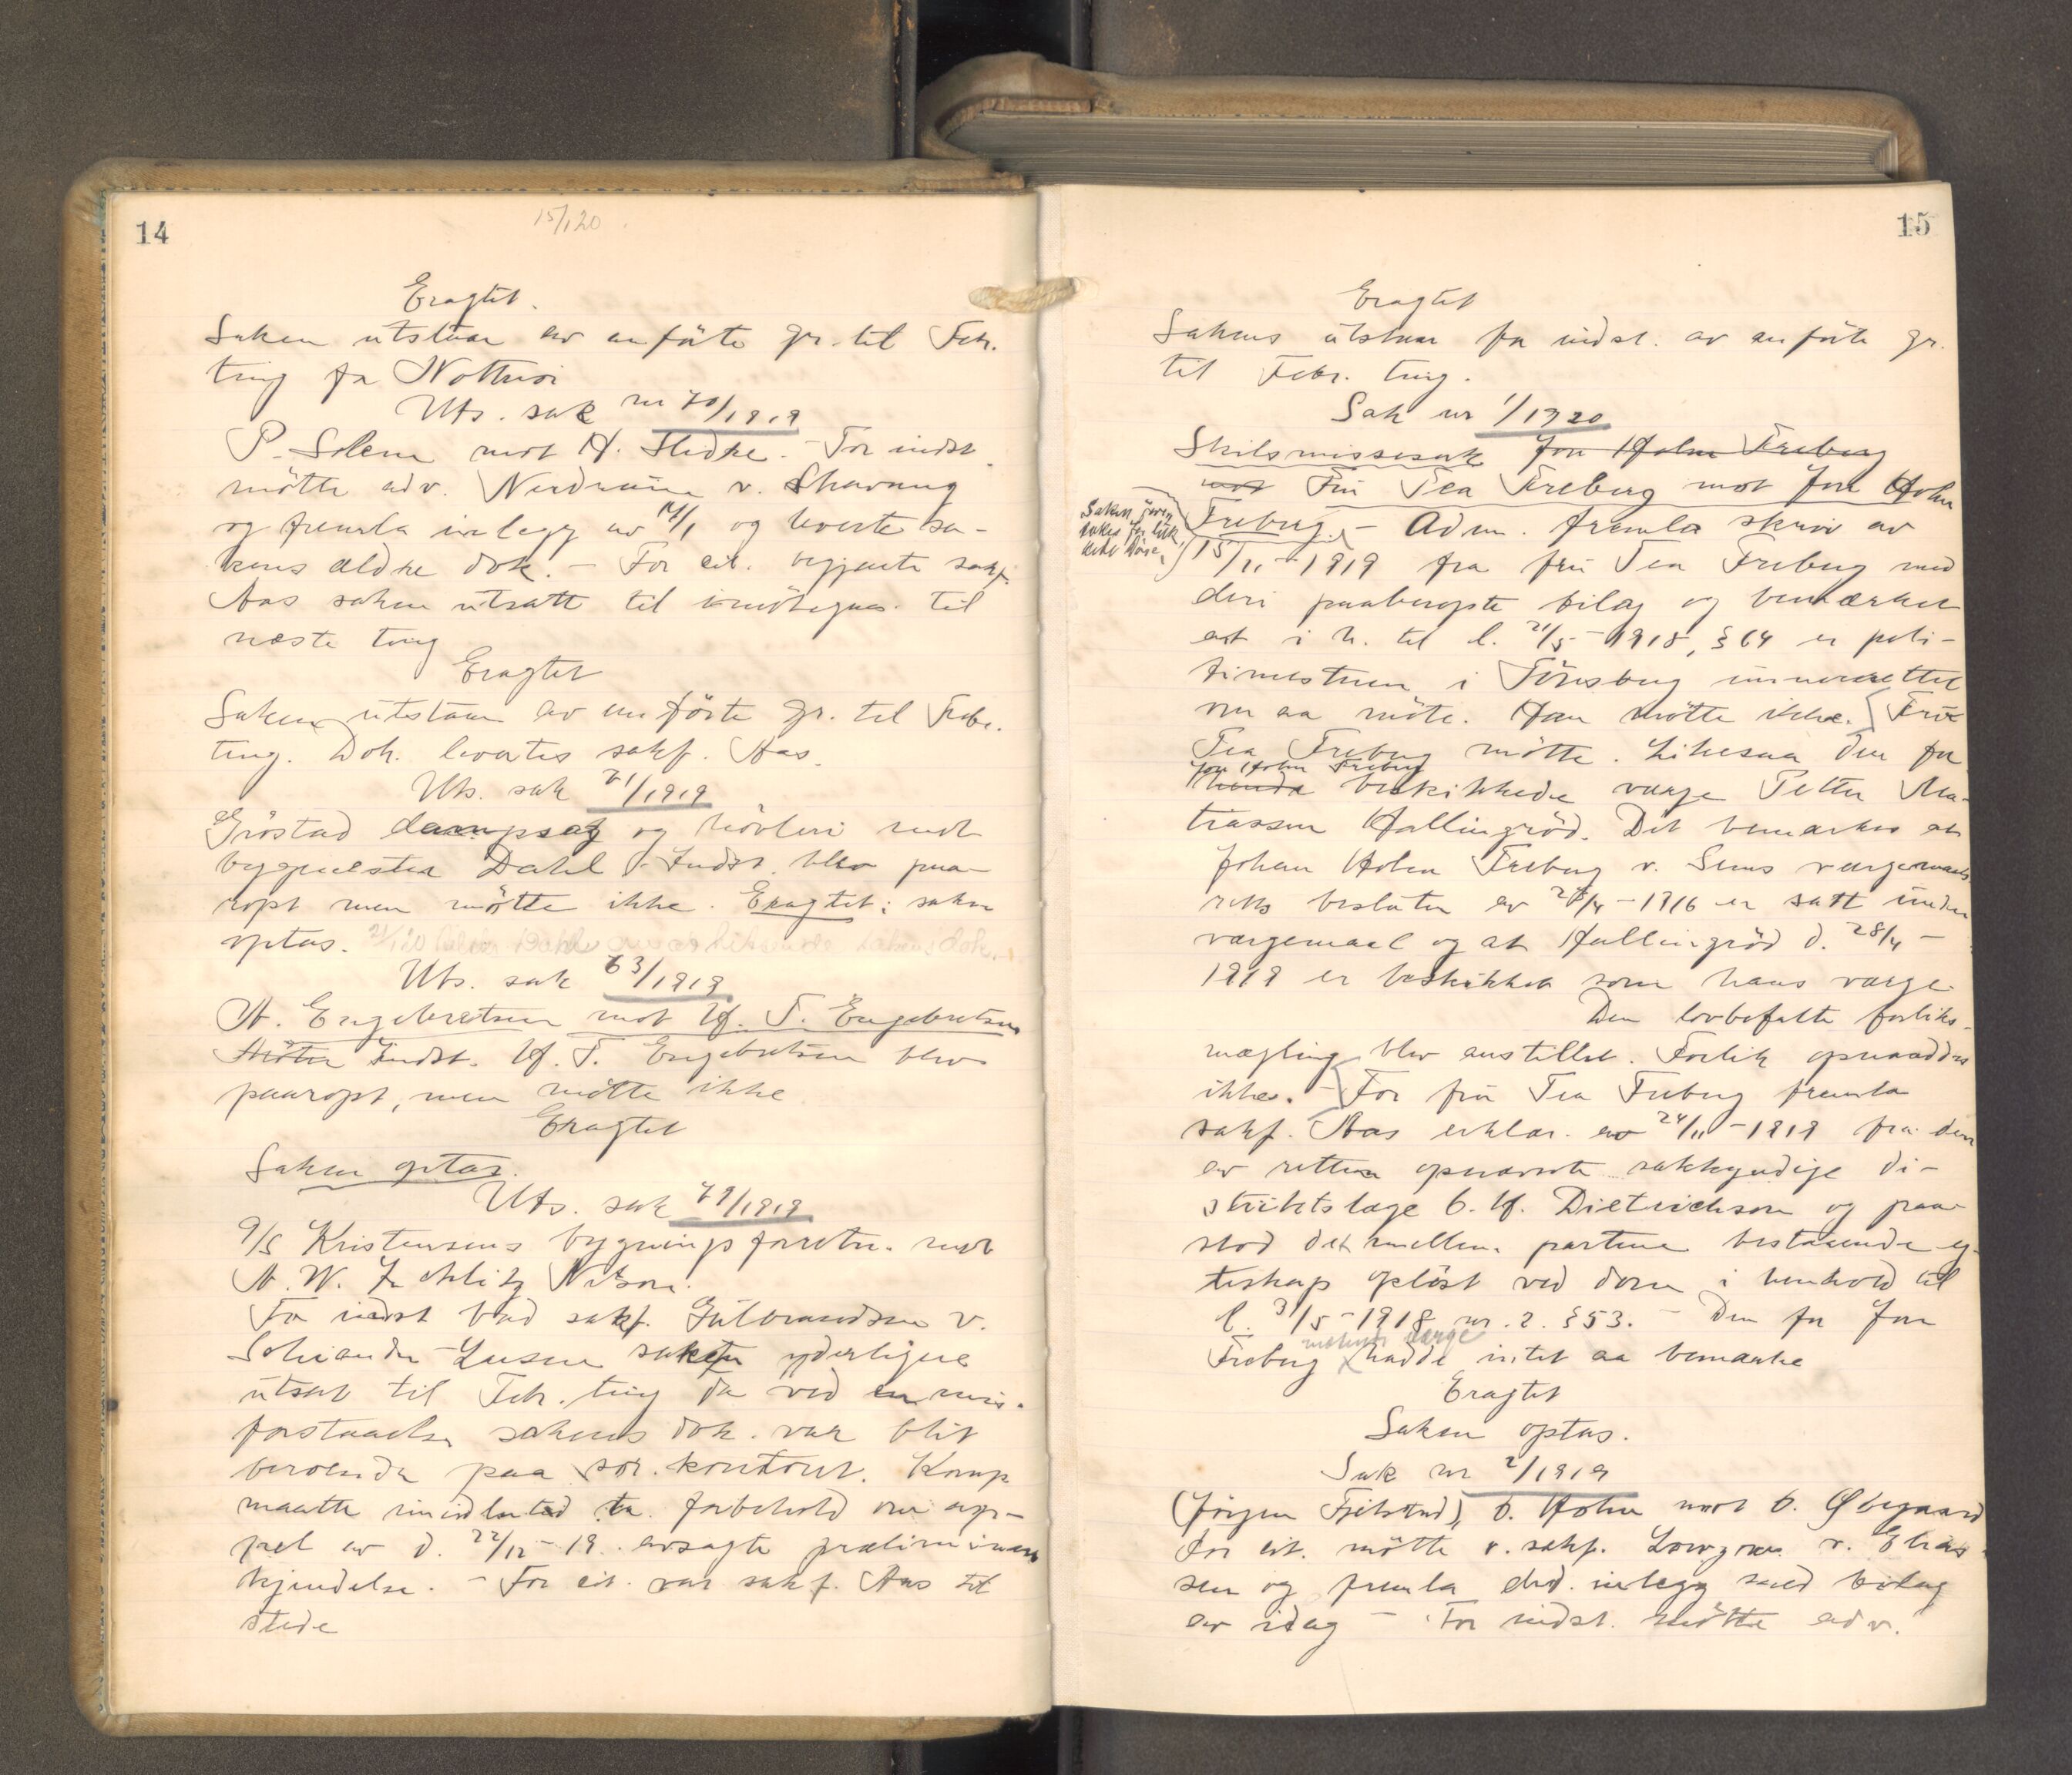 14
15/1 20
Eragtet.
Saken utstaar av anførte gr. til Febr.
ting for Nøtterøi
Uts. sak nr 70/1919
P. Solem mot H. Slidre. - For indst.
møtte adv. Nordrum v. Skavang
og fremla inlegg av 14/1 og leverte sa-
kens ældre dok. - For cit. begjærte sakf.
Aas saken utsatt til imøtegaa. til
næste ting
Eragtet
Saken utstaar av anførte gr. til Febr.
ting. Dok. levertes sakf. Aas.
Uts. sak 71/1919
Grøstad dampsag og høvleri mot
byggmester Dahl. Indst. blev paa-
ropt men møtte ikke. Eragtet: saken
optas. 21/1 20 Dahl sakens dok.
Uts. sak 63/1919
A. Engebretsen mot H. T. Engebretsen
Møtte Indst. H. T. Engebretsen blev
paaropt, men møtte ikke
Eragtet
Saken optas.
Uts. sak 79/1919
A/S Kristensens bygningsforretn. mot
A. W. Nilson.
For indst bad sakf. Gulbrandsen v.
Schiander Larsen saken yderligere
utsat til Febr. ting da ved en mis-
forstaaelse sakens dok. var blit
beroende paa sor. kontoret. Komp
maatte imidlertid ta forbehold om ap-
pel av d. 22/12 - 19. avsagte præliminære
kjendelse. - For cit. var sakf. Aas til
stede
15
Eragtet
Sakens utstaar for indst. av anførte gr.
til Febr. ting.
Sak nr 1/1920
Skilsmissesak Jon Holm Freberg
mot Fru Tea Freberg mot Jon Holm
Saken
for luk
kede døre.
Freberg. - Adm. fremla skriv av
15/11 - 1919 fra fru Tea Freberg med
deri paaberopte bilag og bemærket
at i h. til l. 31/5 - 1918, § 64 er poli-
timesteren i Tønsberg underrettet
om aa møte. Han møtte ikke. Fru
Tea Freberg møtte. Likesaa den for
Jon Holm Freberg
hende beskikkede verge Petter Ma-
tiassen Hallingrød. Det bemærkes at
Johan Holm Freberg v. Sems vergemaals
retts beslutn av 28/4 - 1916 er satt under
vergemaal og at Hallingrød d. 28/4 -
1919 er beskikket som hans verge.
Den lovbefalte forliks-
mægling blev anstillet. Forlik opnaaddes
ikke. - For fru Tea Freberg fremla
sakf. Aas erklær. av 24/11 - 1919 fra den
av retten opnævnte sakkyndige di-
striktslæge C. H. Dietrichson og paa-
stod det mellem partene bestaaende eg-
teskap opløst ved dom i henhold til
l. 31/5 - 1918 nr. 2. § 53. - Den for Jon
møtende verge
Freberg hadde intet aa bemærke
Eragtet
Saken optas.
Sak nr 2/1919
(Jørgen Fjelstad), C. Holm mot C. Øbegaard
For cit. møtte o. sakf. Lowzow v. Elias-
sen og fremla inlegg med bilag
av idag - For indst. møtte adv.